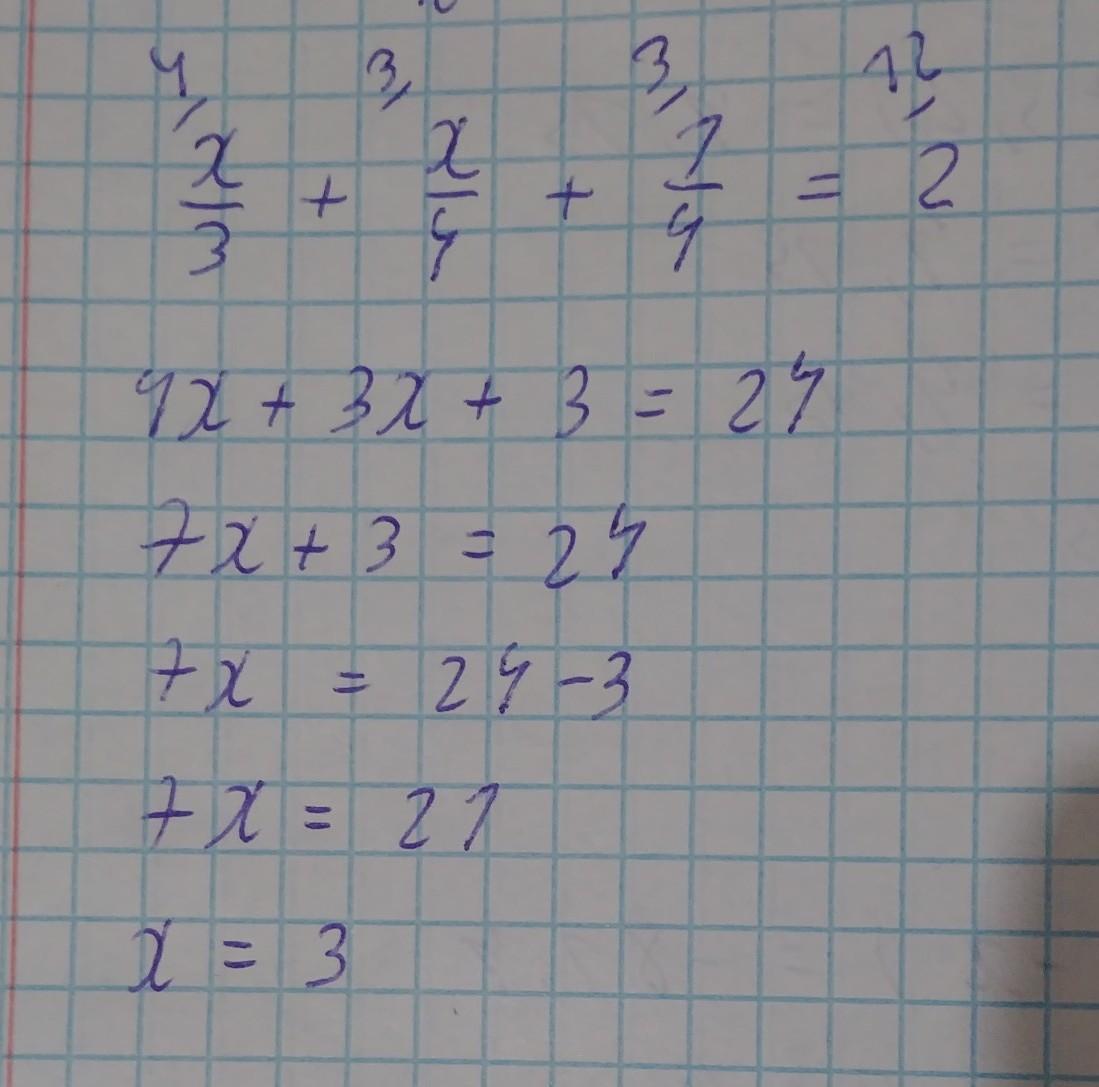 4, 3, 3, 12,
x/3 + x/4 + 1/4 = 2
4x + 3x + 3 = 24
7x + 3 = 24
7x = 24 - 3
7x = 21
x = 3